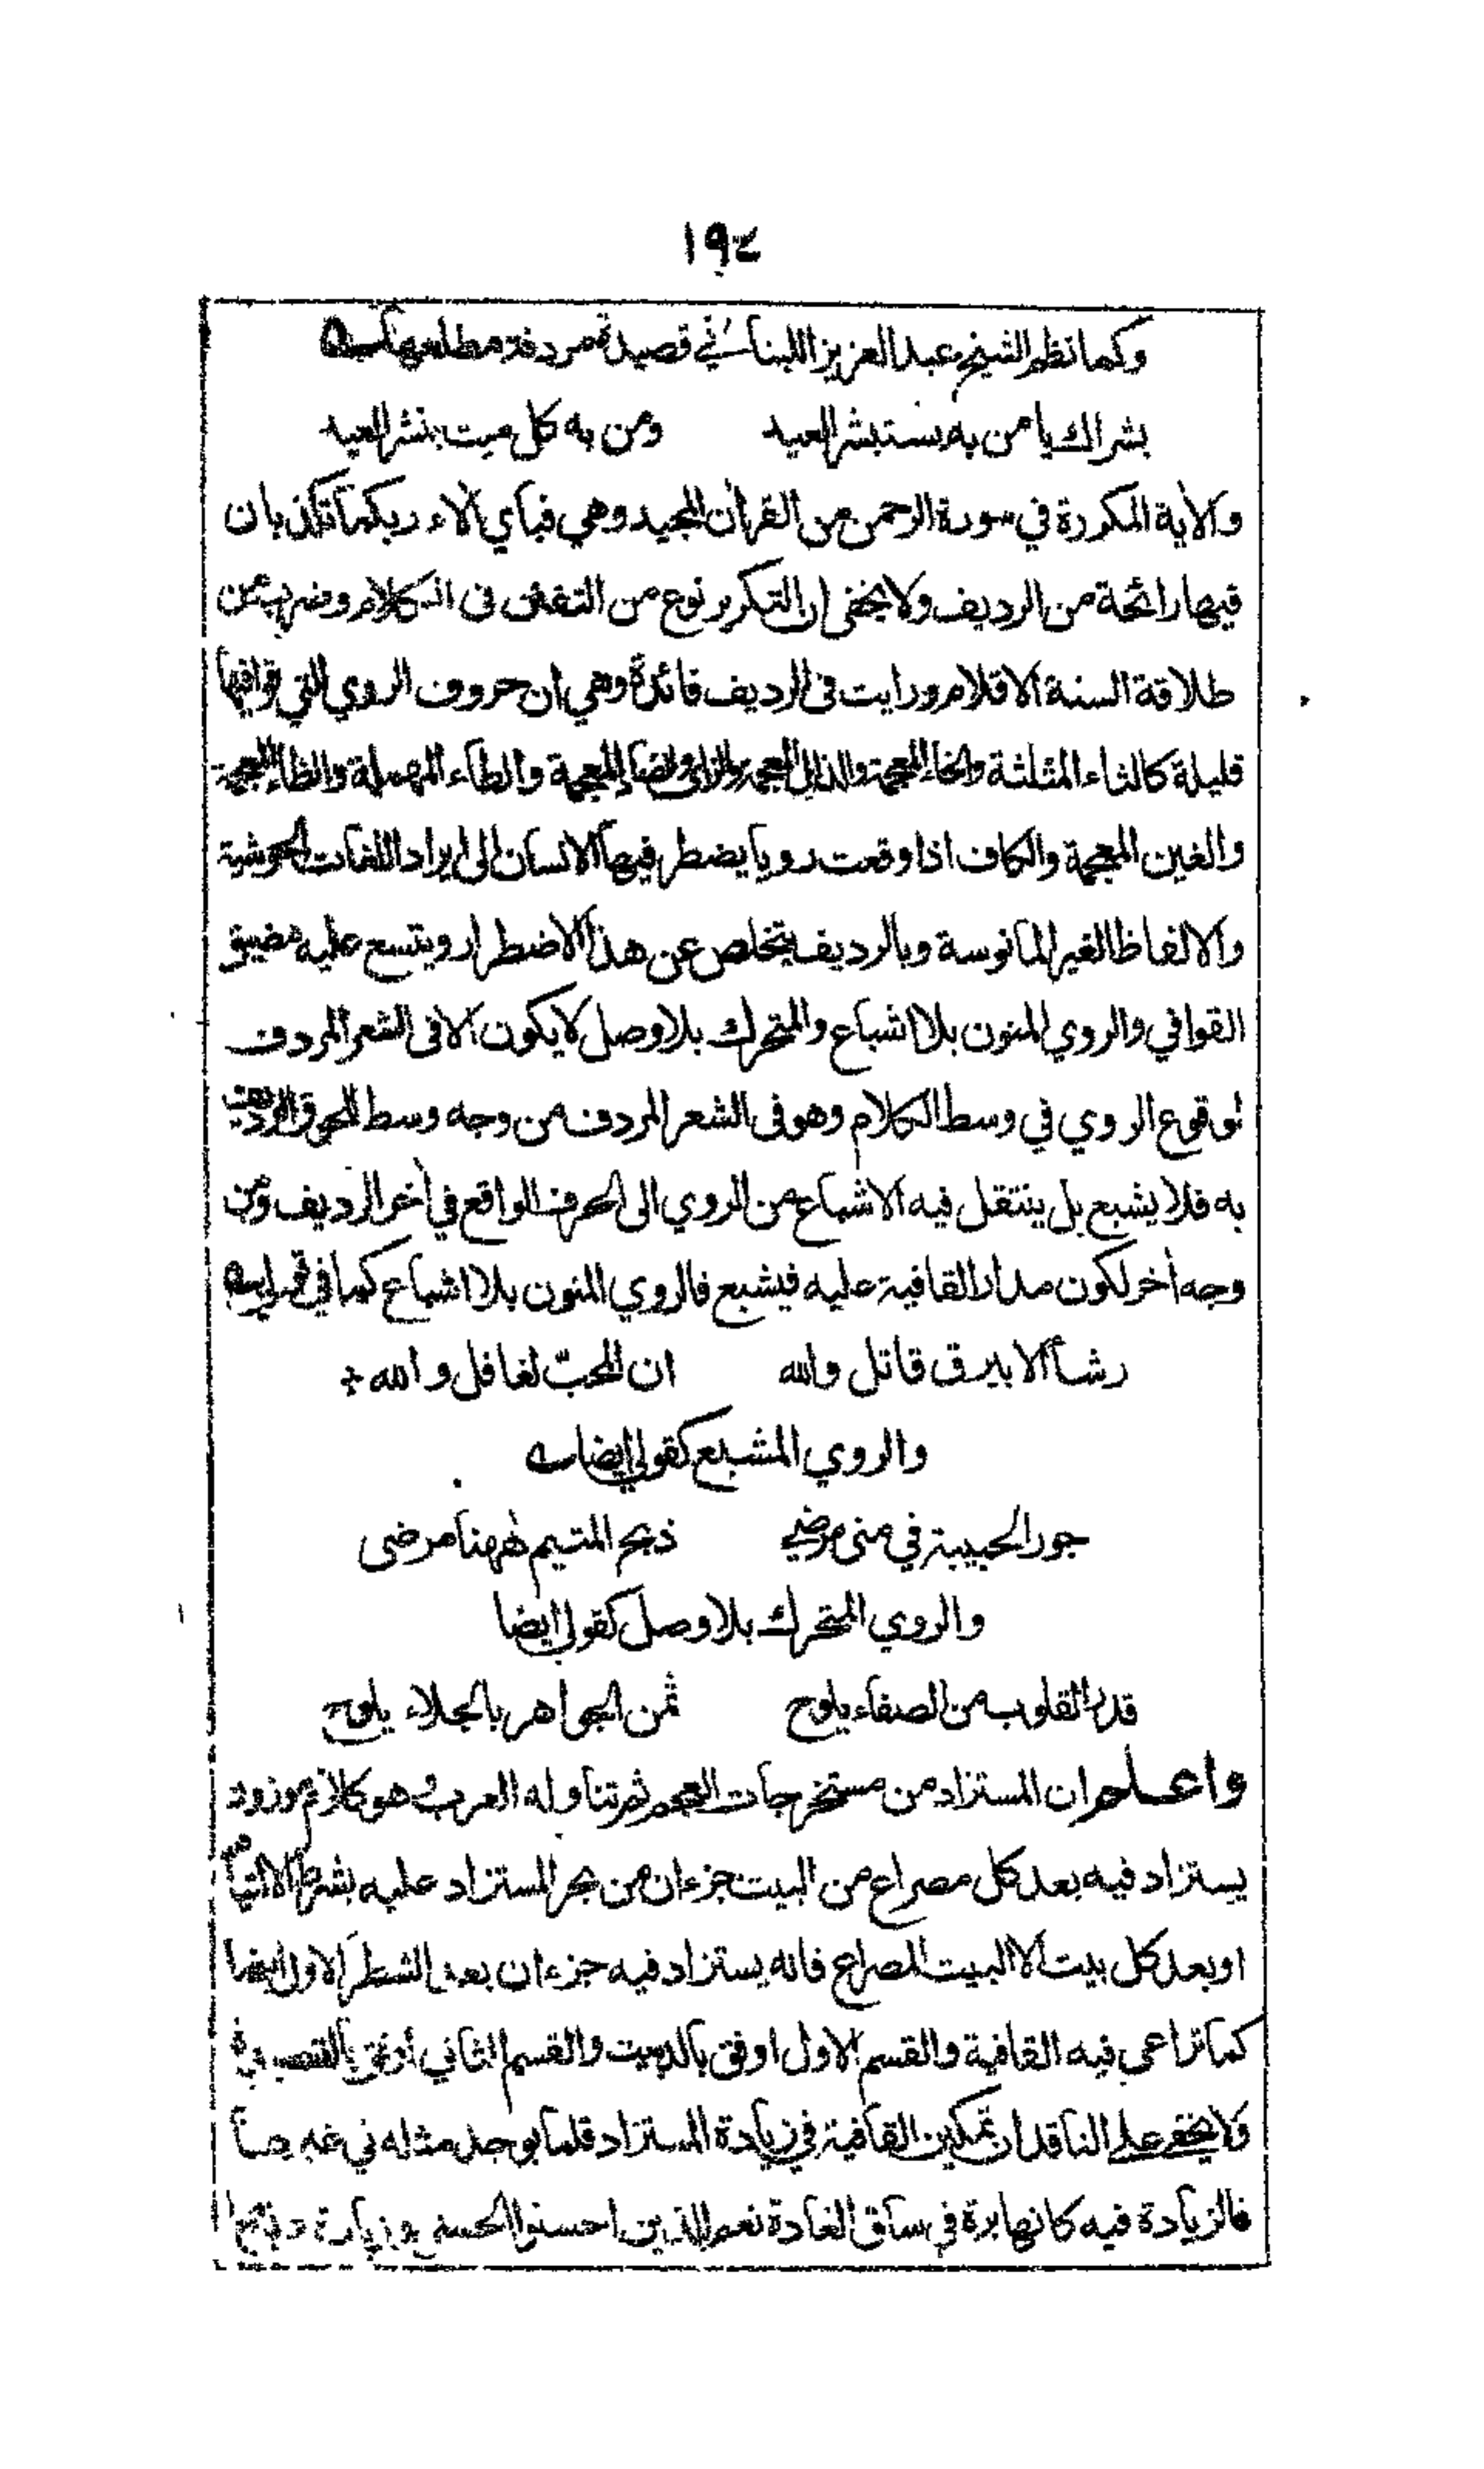 ١٩٤
وكما نظم الشيخ عبد العزيز اللبناني في قصيدة مردفة مطلعها
بشراك يا من به يستبشر العيد ومن به كل ميت ينشر العيد
والأية المكررة في سورة الرحمن من القرأن المجيد وهي فبأي ألاء ربكما تكذبان
فيها رائحة من الرديف ولا يخفى ان التكرير نوع من التفنن فى الكلام وضرب من
طلاقة السنة الاقلام ورايت فى الرديف فائدة وهي ان حروف الروي التي قوافيها
قليلة كالثاء المثلثة والخاء المعجمة والذال المعجمة والزاى والضاد المعجمة والطاء المهملة والظاء المعجمة
والغين المعجمة والكاف اذا وقعت رويا يضطر فيها الانسان الى ايراد اللغات الحوشية
والالفاظ الغير المانوسة وبالرديف يتخلص عن هذا الاضطرار ويتسع عليه مضيق
القوافي والروي المنون بلا اشباع والمتحرك بلا وصل لا يكون الا فى الشعر المردف
لوقوع الروي في وسط الكلام وهو فى الشعر المردف من وجه وسط للحوق الرديف
به فلا يشبع بل ينتقل فيه الاشباع من الروي الى الحرف الواقع في أخر الرديف ومن
وجه أخر لكون مدار القافية عليه فيشبع فالروي المنون بلا اشباع كما في قولي
رشأ الابيرق قاتل والله ان المحبّ لغافل والله
والروي المشبع كقولي ايضا
جور الحبيبة في منى مرضي ذبح المتيم ههنا مرضى
والروي المتحرك بلا وصل كقولي ايضا
قدر القلوب من الصفاء يلوح ثمن الجواهر بالجلاء يلوح
واعلم ان المستزاد من مستخرجات العجم ثم تناوله العرب وهو كلام موزون
يستزاد فيه بعد كل مصراع من البيت جزءان من بحر المستزاد عليه بشرط الالتيام
او بعد كل بيت الا البيت المصراع فانه يستزاد فيه جزءان بعد الشطر الاول ايضا
كما تراعى فيه القافية والقسم الاول اوفق بالدوبيت والقسم الثاني أوفق بالقصيدة
ولا يخفى على الناقد ان تمكين القافية في زيادة المستزاد قلما يوجد مثله في غيرها
فالزيادة فيه كانها برة في ساق الغادة نعم للذين احسنوا الحسنى وزيادة